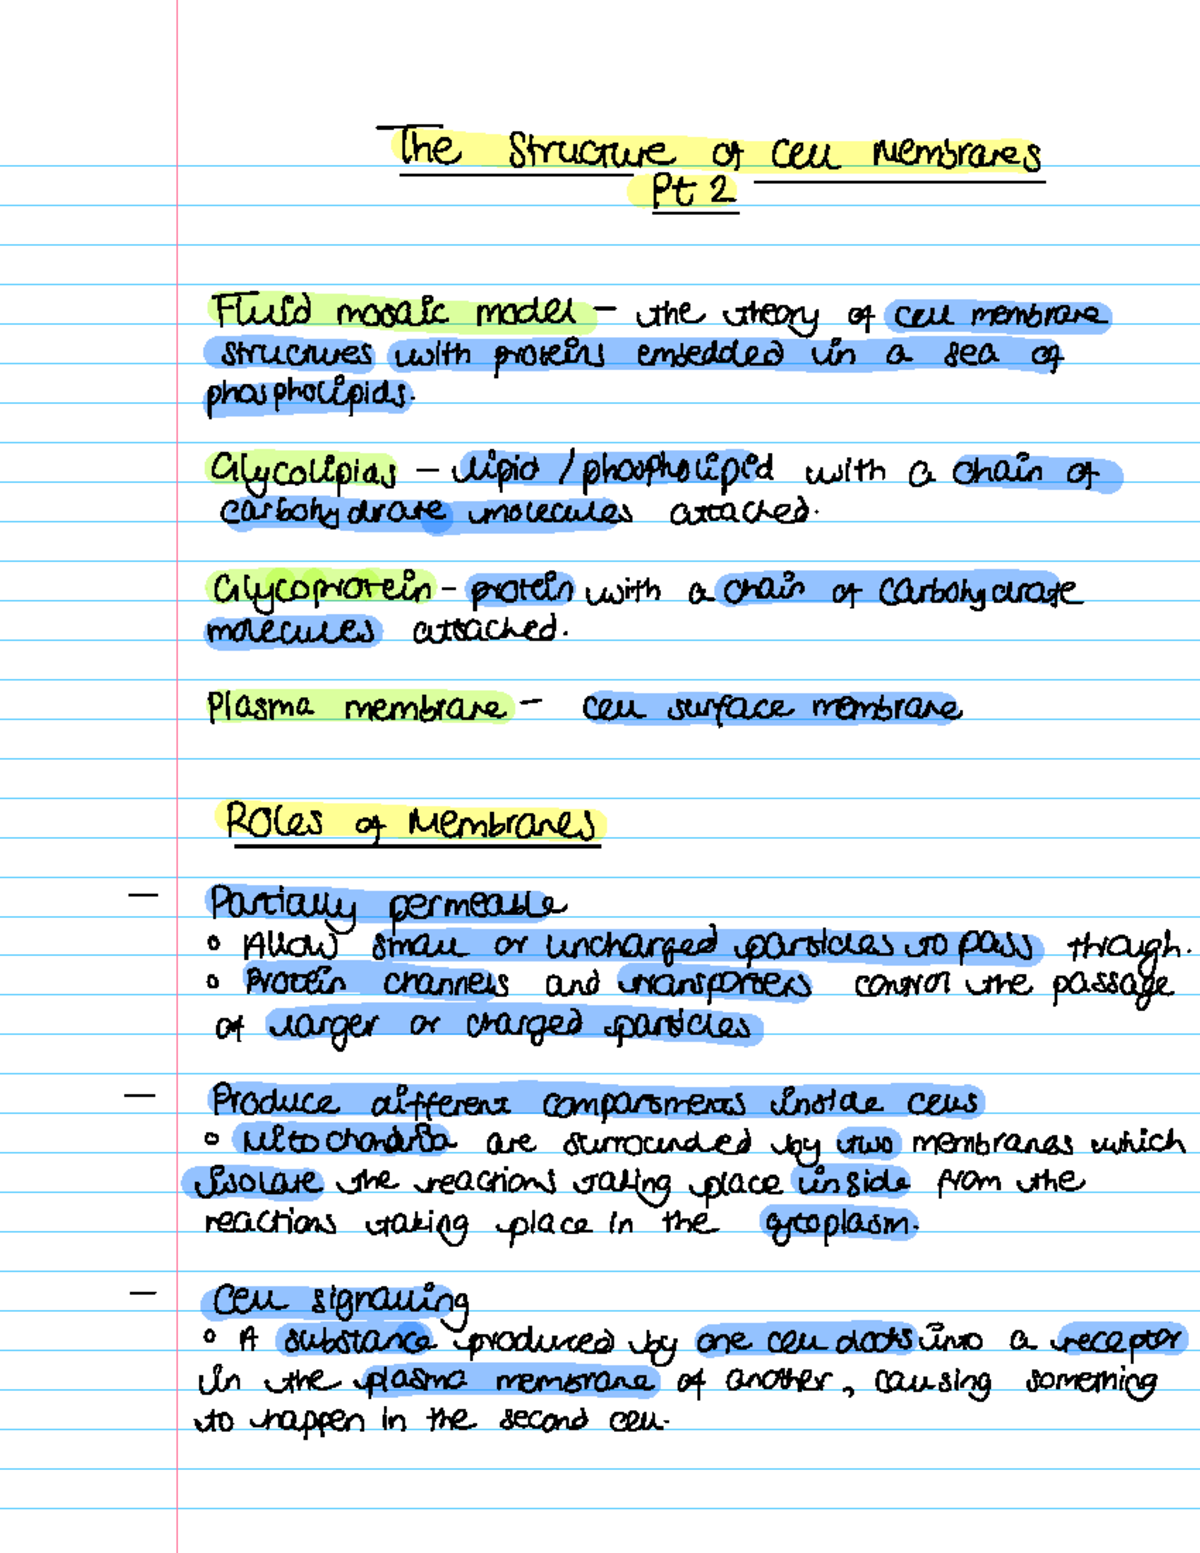 The Structure of Cell Membranes
Pt 2
Fluid mosaic model – the theory of cell membrane
structures with proteins embedded in a sea of
phospholipids.
Glycolipids – lipid / phospholipid with a chain of
carbohydrate molecules attached.
Glycoprotein – protein with a chain of carbohydrate
molecules attached.
Plasma membrane – cell surface membrane
Roles of Membranes
– Partially permeable
∘ Allow small or uncharged particles to pass through.
∘ Protein channels and transporters control the passage
of larger or charged particles
– Produce different compartments inside cells
∘ Mitochondria are surrounded by two membranes which
isolate the reactions taking place inside from the
reactions taking place in the cytoplasm.
– Cell signalling
∘ A substance produced by one cell docks into a receptor
in the plasma membrane of another, causing something
to happen in the second cell.